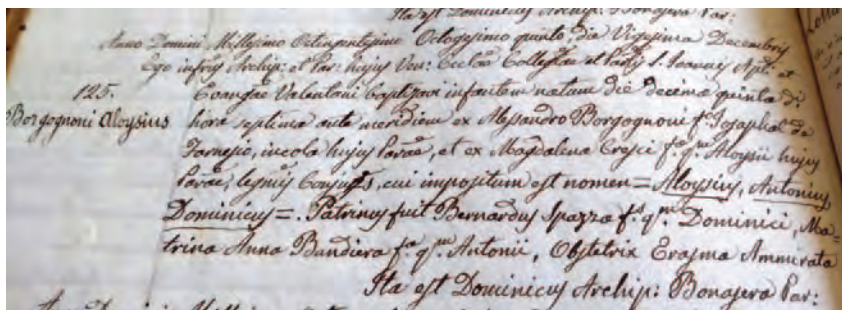 Ita est Dominicus Archip: Bonasera Par:
Anno Domini Millesimo Octingentesimo Octogesimo quinto, die Vigesima Decembris
Ego infrus Archip: et Par: hujus Ven: Ecclae Collegtae et Parlis S. Joannis Apli: et
125. Evangtae Valentani baptizavi infantem natum die decima quinta di
Borgognoni Aloysius hora septima ante meridiem ex Alessandro Borgognoni fo Josaphat de
Farnesio, incola hujus Parae, et ex Magdalena Cresci fa qm Aloysii hujus
Parae, legmis Conjugs, cui impositum est nomen = Aloysius, Antonius
Dominicus =. Patrinus fuit Bernardus Spazza fs qm Dominici, Ma=
trina Anna Bandiera fa qm Antonii, Obstetrix Erasma Ammirata
Ita est Dominicus Archip: Bonasera Par:
Anno